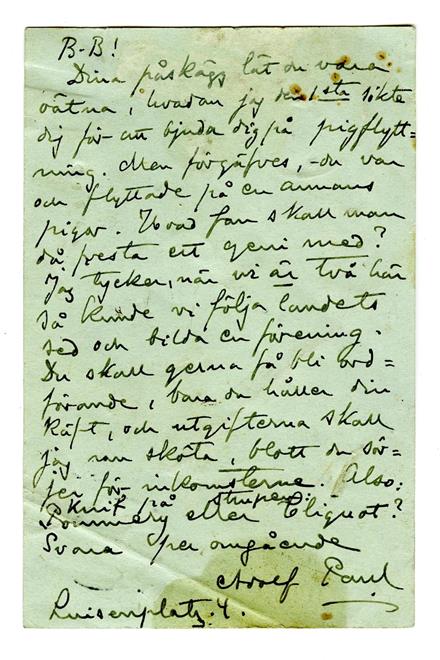 B-B!
Dina påskägg lät du vara
oätna, hvadan jag den 1sta sökte
dig för att bjuda dig på pigflytt=
ning. Men förgäfves, - du var
och flyttade på en annans
pigor. Hvad fan skall man
då fresta ett geni med?
Jag tycker, när vi är två här
så kunde vi följa landets
sed och bilda en förening.
Du skall gerna få bli ord=
förande, bara du håller din
käft, och utgifterna skall
jag nan sköta, blott du sör-
jer för inkomsterne. Also:
knif på strupen
Pommery eller Cliquot?
Svara per omgående
Adolf Paul
Luisenplatz. 4.